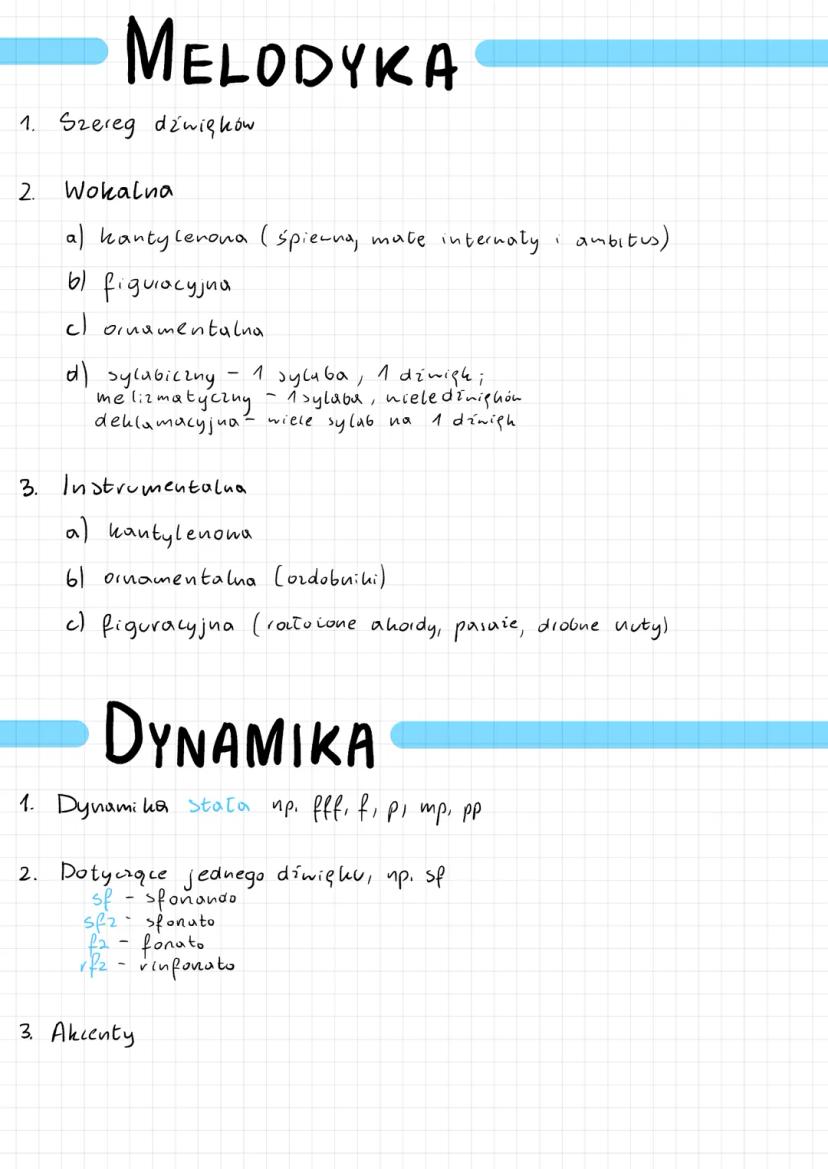 MELODYKA
1. Szereg dźwięków
2. Wokalna
a) kantylenowa (śpiewna, małe interwały i ambitus)
b) figuracyjna
c) ornamentalna
d) sylabiczny – 1 sylaba, 1 dźwięk;
melizmatyczny – 1 sylaba, wiele dźwięków
deklamacyjna – wiele sylab na 1 dźwięk
3. Instrumentalna
a) kantylenowa
b) ornamentalna (ozdobniki)
c) figuracyjna (rozłożone akordy, pasaże, drobne nuty)
DYNAMIKA
1. Dynamika stała np. fff, f, p, mp, pp
2. Dotyczące jednego dźwięku, np. sf
sf – sforzando
sfz – sforzato
fz – forzato
rfz – rinforzato
3. Akcenty